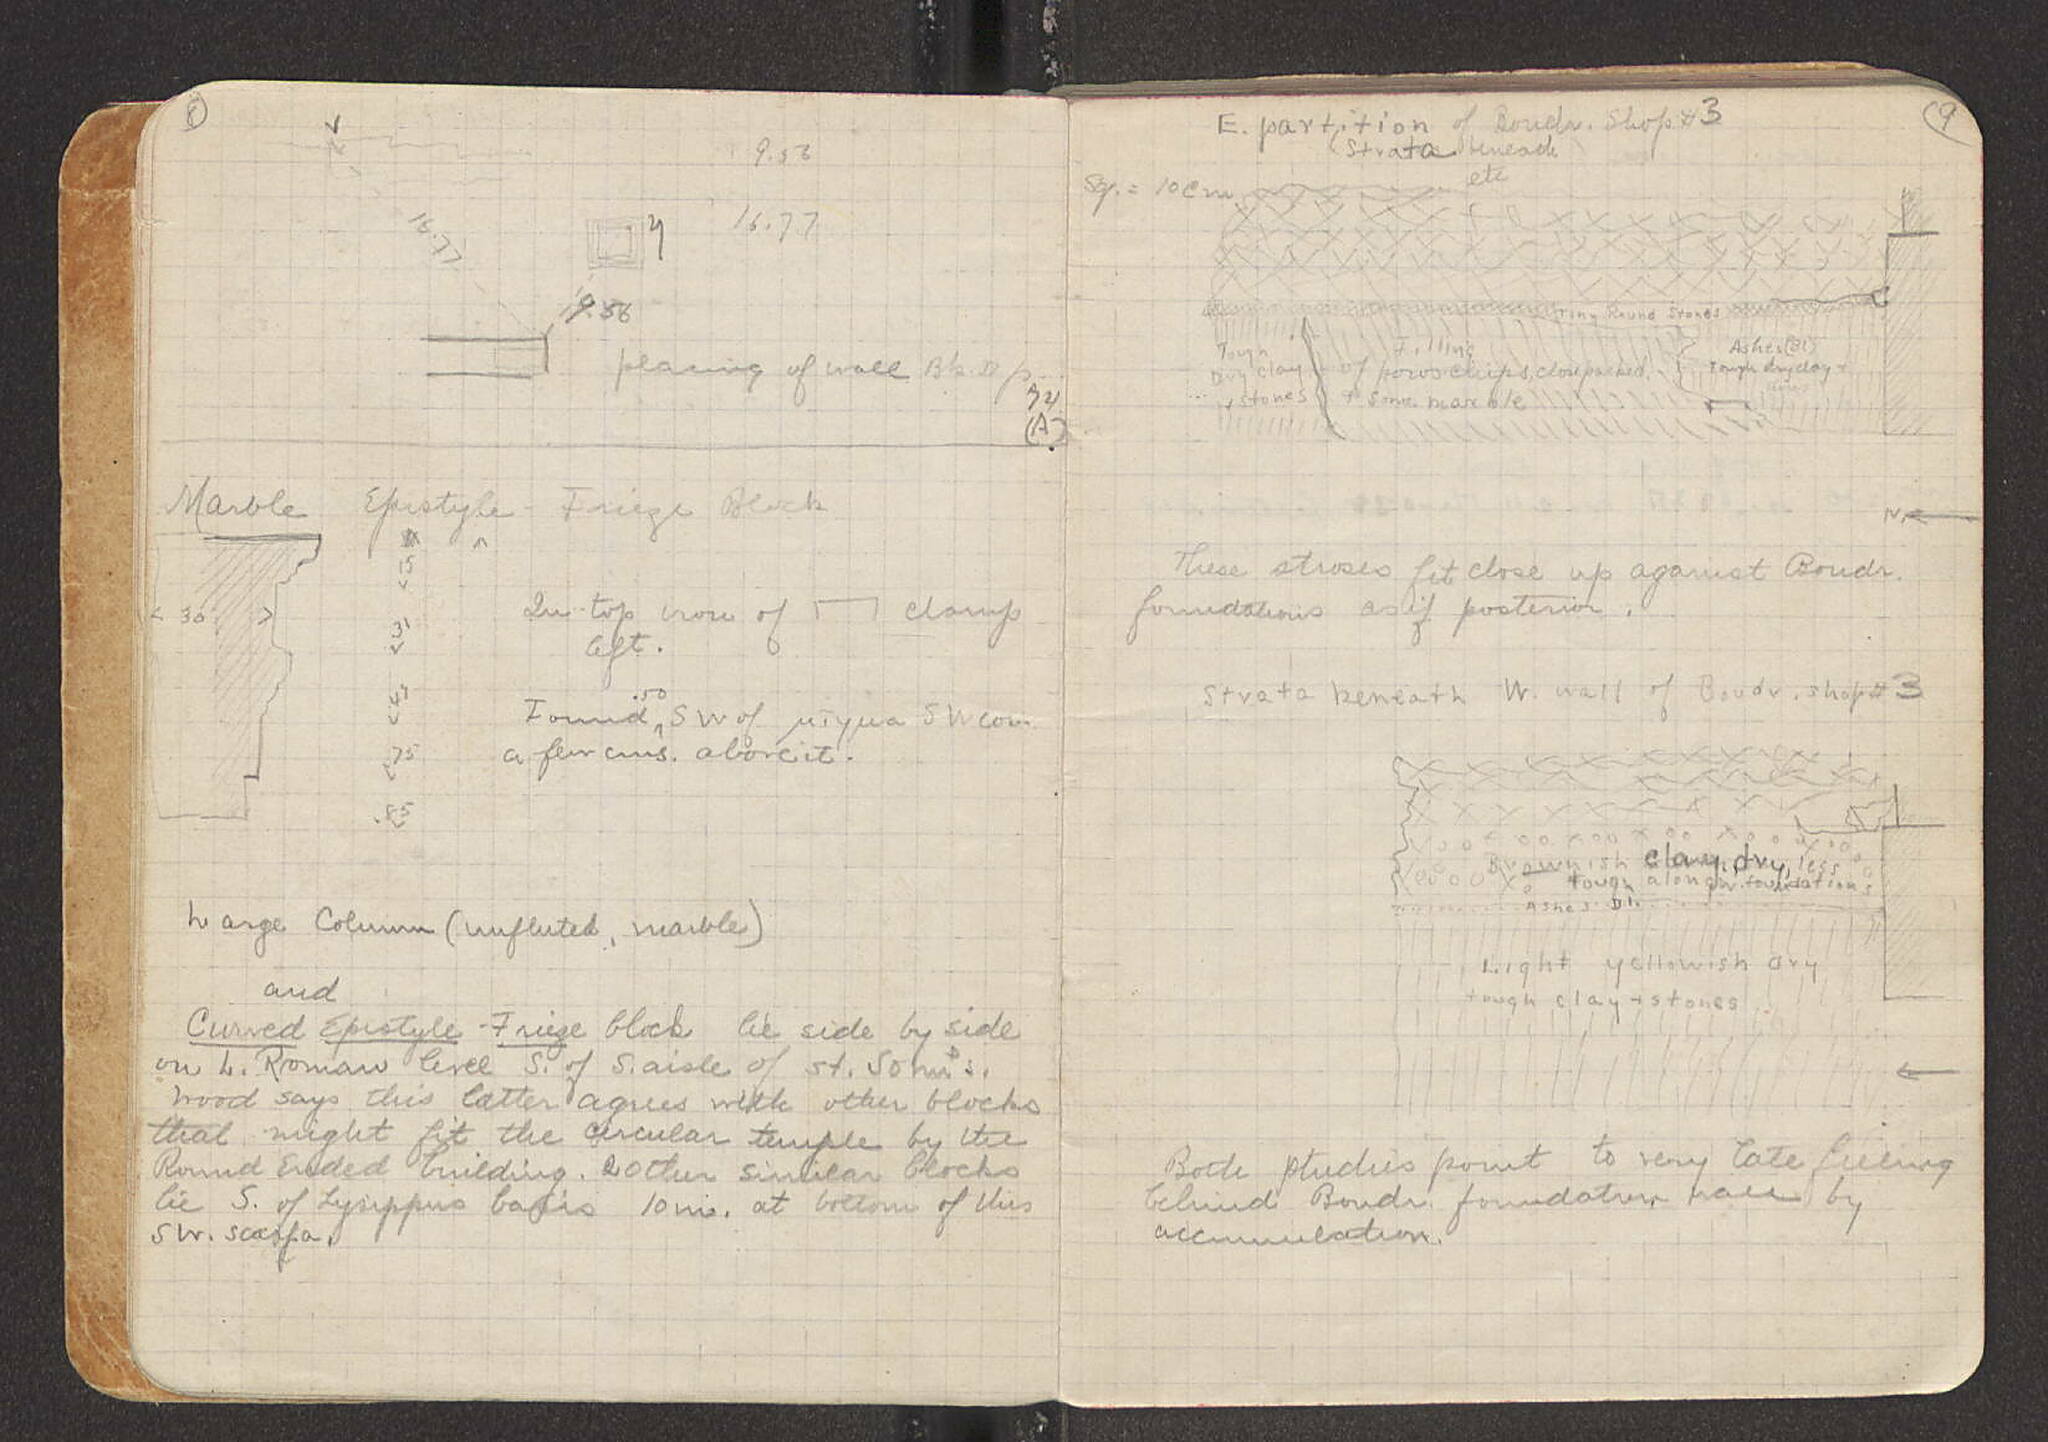 8
9.56
16.77
16.77
9.56
placing of wall Bk. p.
(A)
Marble Epistyle - Frieze Block
15
30
31
In top iron of clamp
left.
.50
Found SW of μῖγμα SW corn.
a few cms. above it.
75
.85
Large Column (unfluted, marble)
and
Curved Epistyle - Frieze block lie side by side
on L. Roman level S. of S. aisle of St. John's.
Wood says this latter agrees with other blocks
that might fit the circular temple by the
Round Ended building. 2 other similar blocks
lie S. of Lysippus basis 10 m. at bottom of this
SW. scarpa.
9
E. partition of Boudr. Shop #3
(Strata beneath
etc
Sq. = 10 cm.
Tiny Round Stones
Tough
Dry clay
+ stones
Filling
of poros chips, close packed.
+ some marble
Ashes (Bl)
Tough dry clay +
N.
These stroses fit close up against Boudr.
foundations as if posterior.
Strata beneath W. wall of Boudr. shop #3
Brownish clay, dry, less
tough along w. foundations
Ashes Bl.
Light yellowish dry
tough clay + stones
Both studies point to very late filling
behind Boudr. foundation wall by
accumulation.